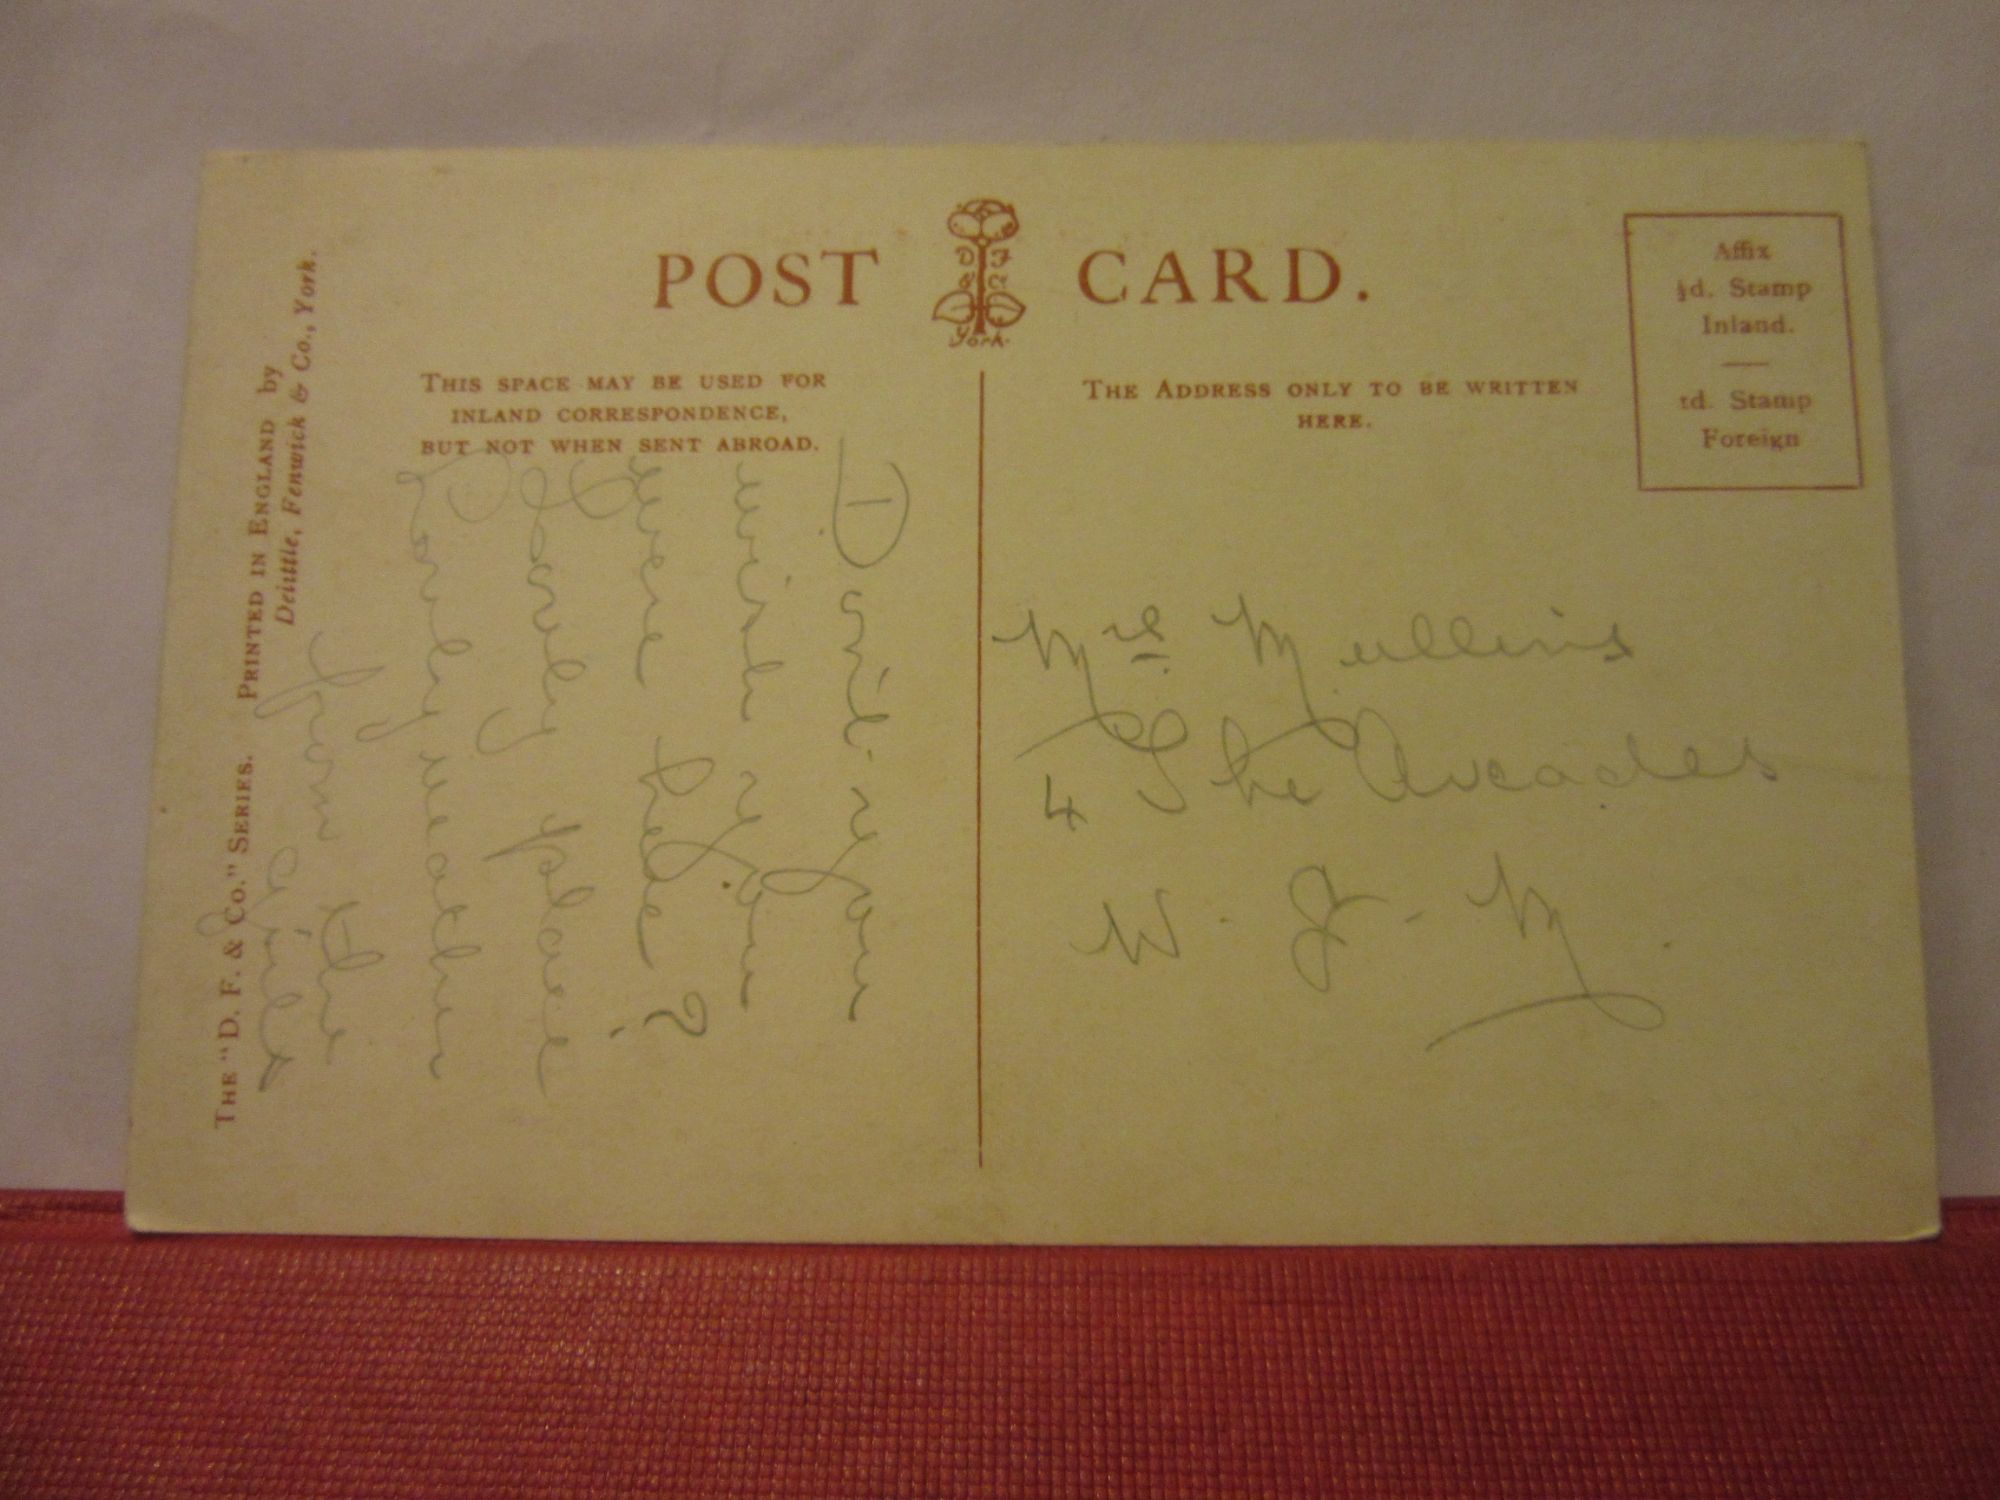 POST CARD.
D F
& Co
York.
Affix
½d. Stamp
Inland.
1d. Stamp
Foreign
THIS SPACE MAY BE USED FOR
INLAND CORRESPONDENCE,
BUT NOT WHEN SENT ABROAD.
THE ADDRESS ONLY TO BE WRITTEN
HERE.
THE "D. F. & CO." SERIES. PRINTED IN ENGLAND by
Deittle, Fenwick & Co., York.
Don't you
wish you
were here?
Lovely place
Lovely weather
from the
Girls
Mrs Mullins
4 The Arcades
W. J. M.